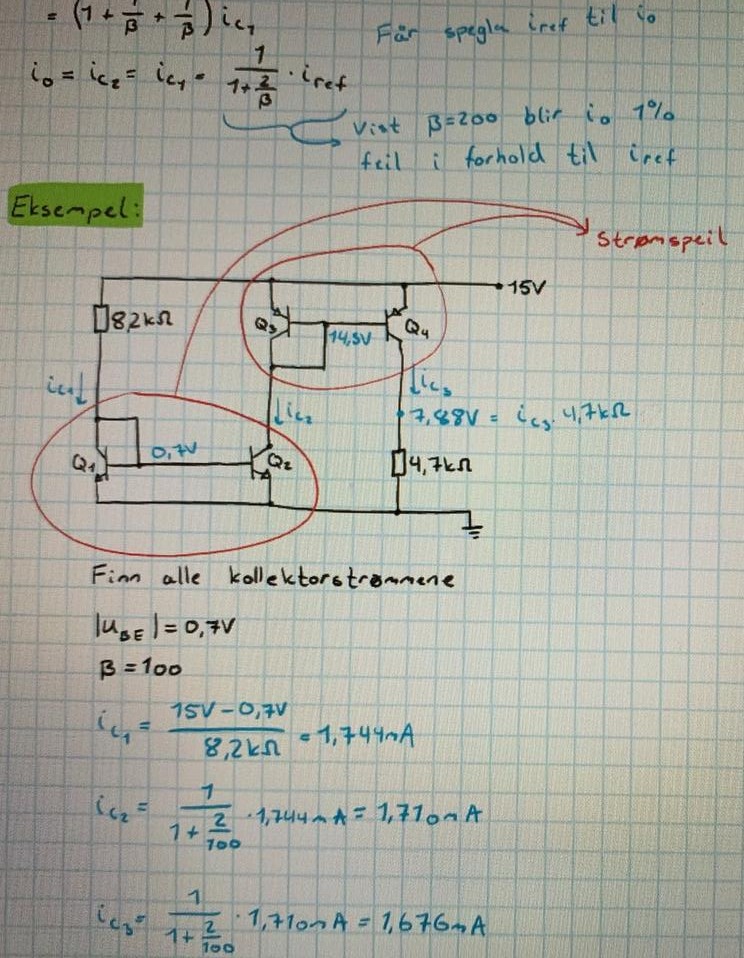 = (1 + 1/β + 1/β) i_c1
Får spegla iref til io
i_o = i_c2 = i_c1 = 1/(1+2/β) · i_ref
Vist β=200 blir io 1%
feil i forhold til iref
Eksempel:
Strømspeil
15V
8,2kΩ
Q3
14,3V
Q4
i_c1 ↓
↓ i_c2
↓ i_c3
7,88V = i_c3 · 4,7kΩ
Q1
0,7V
Q2
4,7kΩ
Finn alle kollektorstrømmene
|u_BE| = 0,7V
β = 100
i_c1 = (15V - 0,7V)/(8,2kΩ) = 1,744mA
i_c2 = 1/(1 + 2/100) · 1,744mA = 1,710mA
i_c3 = 1/(1 + 2/100) · 1,710mA = 1,676mA